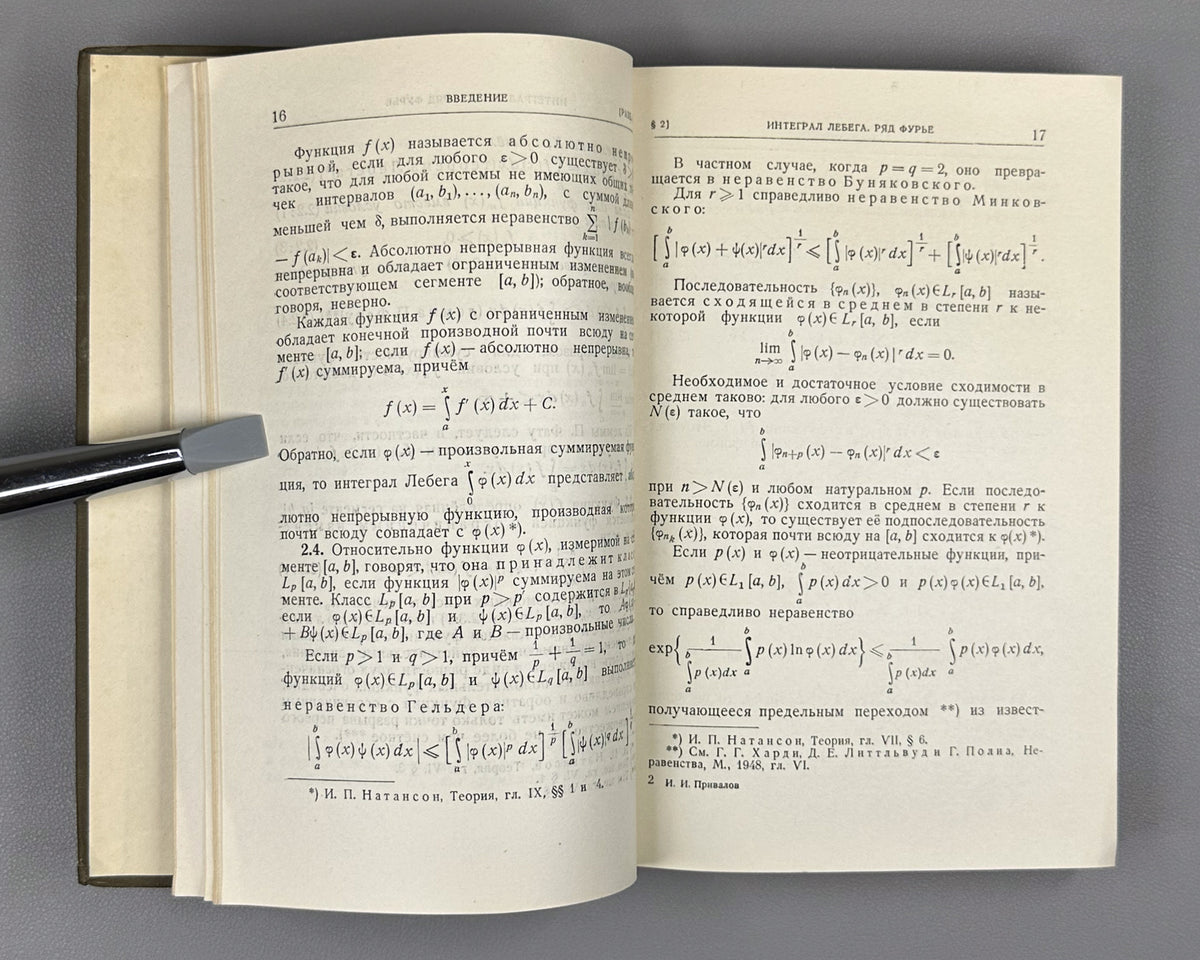 16
ВВЕДЕНИЕ
Функция f (x) называется абсолютно
рывной, если для любого ε > 0 существует
такое, что для любой системы не имеющих общих
чек интервалов (a₁, b₁), . . . , (aₙ, bₙ), с суммой
меньшей чем δ, выполняется неравенство ∑ₖ₌₁ⁿ | f (bₖ)
— f (aₖ)| < ε. Абсолютно непрерывная функция
непрерывна и обладает ограниченным изменением
соответствующем сегменте [a, b]); обратное,
говоря, неверно.
Каждая функция f (x) с ограниченным
обладает конечной производной почти всюду на
менте [a, b]; если f (x) — абсолютно непрерывна,
f′ (x) суммируема, причём
f (x) = ∫ₐˣ f′ (x) dx + C.
Обратно, если φ (x) — произвольная суммируемая
ция, то интеграл Лебега ∫₀ˣ φ (x) dx представляет
лютно непрерывную функцию, производная
почти всюду совпадает с φ (x) *).
2.4. Относительно функции φ (x), измеримой на
менте [a, b], говорят, что она принадлежит
Lₚ [a, b], если функция |φ (x)|ᵖ суммируема на этом
менте. Класс Lₚ [a, b] при p > p′ содержится в
если φ (x) ∈ Lₚ [a, b] и ψ (x) ∈ Lₚ [a, b], то
+ Bψ (x) ∈ Lₚ [a, b], где A и B — произвольные
Если p > 1 и q > 1, причём 1/p + 1/q = 1, то
функций φ (x) ∈ Lₚ [a, b] и ψ (x) ∈ L_q [a, b]
неравенство Гельдера:
|∫ₐᵇ φ (x) ψ (x) dx| ⩽ [∫ₐᵇ |φ (x)|ᵖ dx]^{1/p} [∫ₐᵇ |ψ (x)|^q dx]
*) И. П. Натансон, Теория, гл. IX, §§ 1 и 4.
§ 2]
ИНТЕГРАЛ ЛЕБЕГА. РЯД ФУРЬЕ
17
В частном случае, когда p = q = 2, оно превра-
щается в неравенство Буняковского.
Для r ⩾ 1 справедливо неравенство Минков-
ского:
[∫ₐᵇ |φ (x) + ψ (x)|ʳ dx]^{1/r} ⩽ [∫ₐᵇ |φ (x)|ʳ dx]^{1/r} + [∫ₐᵇ |ψ (x)|ʳ dx]^{1/r}.
Последовательность {φₙ (x)}, φₙ (x) ∈ Lᵣ [a, b] назы-
вается сходящейся в среднем в степени r к не-
которой функции φ (x) ∈ Lᵣ [a, b], если
lim_{n→∞} ∫ₐᵇ |φ (x) — φₙ (x)|ʳ dx = 0.
Необходимое и достаточное условие сходимости в
среднем таково: для любого ε > 0 должно существовать
N (ε) такое, что
∫ₐᵇ |φₙ₊ₚ (x) — φₙ (x)|ʳ dx < ε
при n > N (ε) и любом натуральном p. Если последо-
вательность {φₙ (x)} сходится в среднем в степени r к
функции φ (x), то существует её подпоследовательность
{φ_{nₖ} (x)}, которая почти всюду на [a, b] сходится к φ (x) *).
Если p (x) и φ (x) — неотрицательные функции, при-
чём p (x) ∈ L₁ [a, b], ∫ₐᵇ p (x) dx > 0 и p (x) φ (x) ∈ L₁ [a, b],
то справедливо неравенство
exp{1/∫ₐᵇ p (x) dx ∫ₐᵇ p (x) ln φ (x) dx} ⩽ 1/∫ₐᵇ p (x) dx ∫ₐᵇ p (x) φ (x) dx,
получающееся предельным переходом **) из извест-
*) И. П. Натансон, Теория, гл. VII, § 6.
**) См. Г. Г. Харди, Д. Е. Литтльвуд и Г. Полиа, Не-
равенства, М., 1948, гл. VI.
2 И. И. Привалов